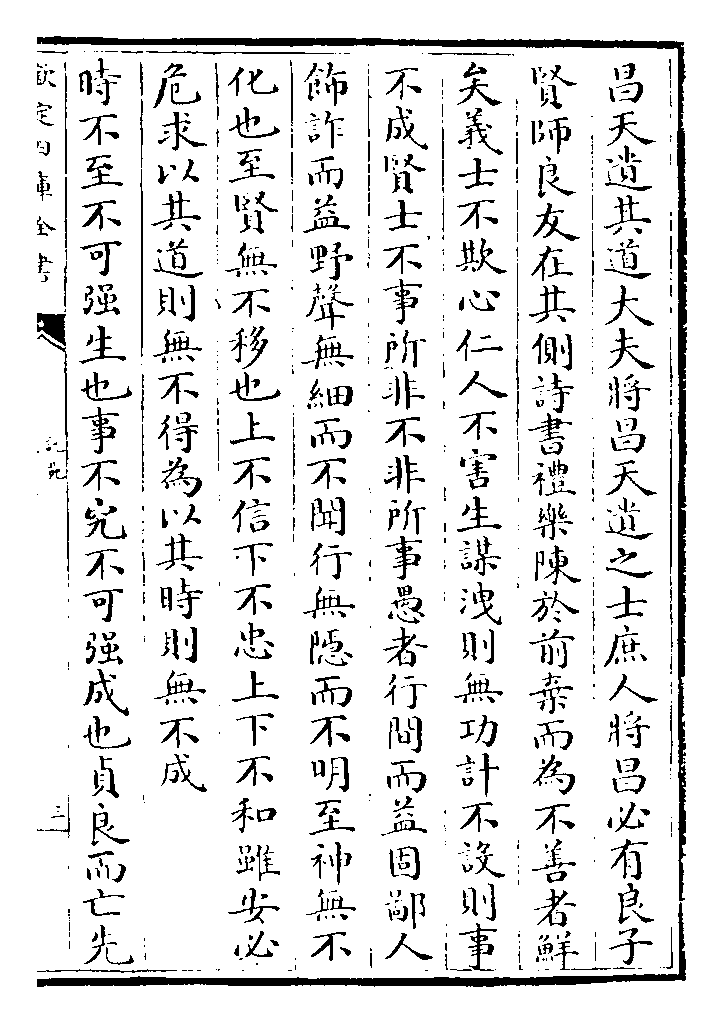 昌天遺其道大夫將昌天遺之士庶人將昌必有良子
賢師良友在其側詩書禮樂陳於前棄而為不善者鮮
矣義士不欺心仁人不害生謀洩則無功計不設則事
不成賢士不事所非不非所事愚者行間而益固鄙人
飾詐而益野聲無細而不聞行無隱而不明至神無不
化也至賢無不移也上不信下不忠上下不和雖安必
危求以其道則無不得為以其時則無不成
時不至不可强生也事不究不可强成也貞良而亡先
欽定四庫全書
說苑
三